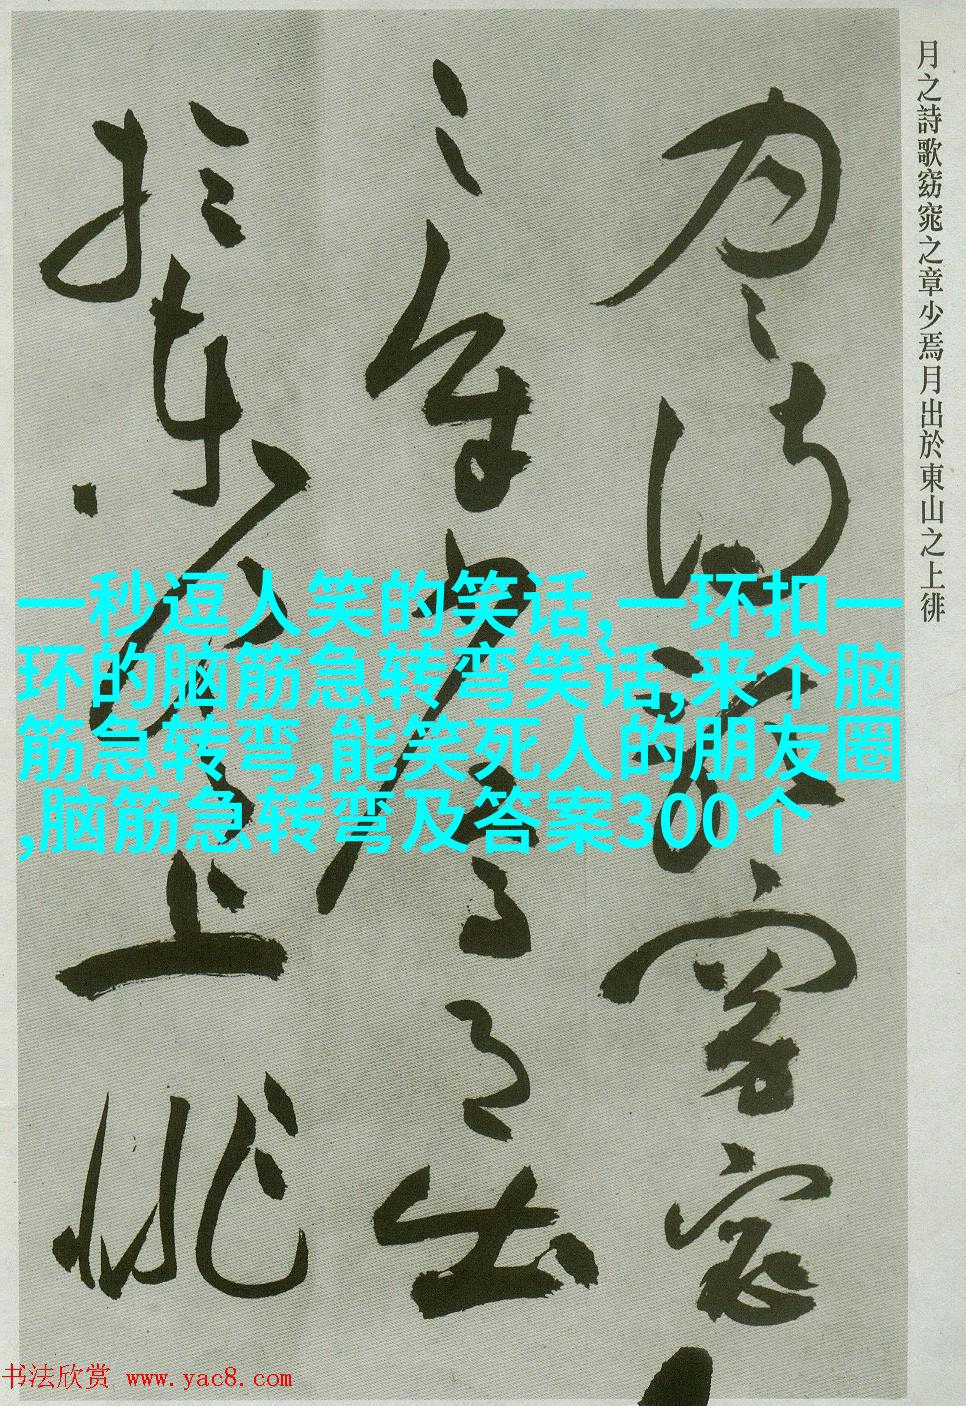 月之詩歌窈窕之章少焉月出於東山之上徘
月之詩歌窈窕
之章少焉月出
於東山之上徘
一秒逗人笑的笑话,一环扣一
环的脑筋急转弯笑话,来个脑
筋急转弯,能笑死人的朋友圈
,脑筋急转弯及答案300个
书法欣赏 www.yac8.com